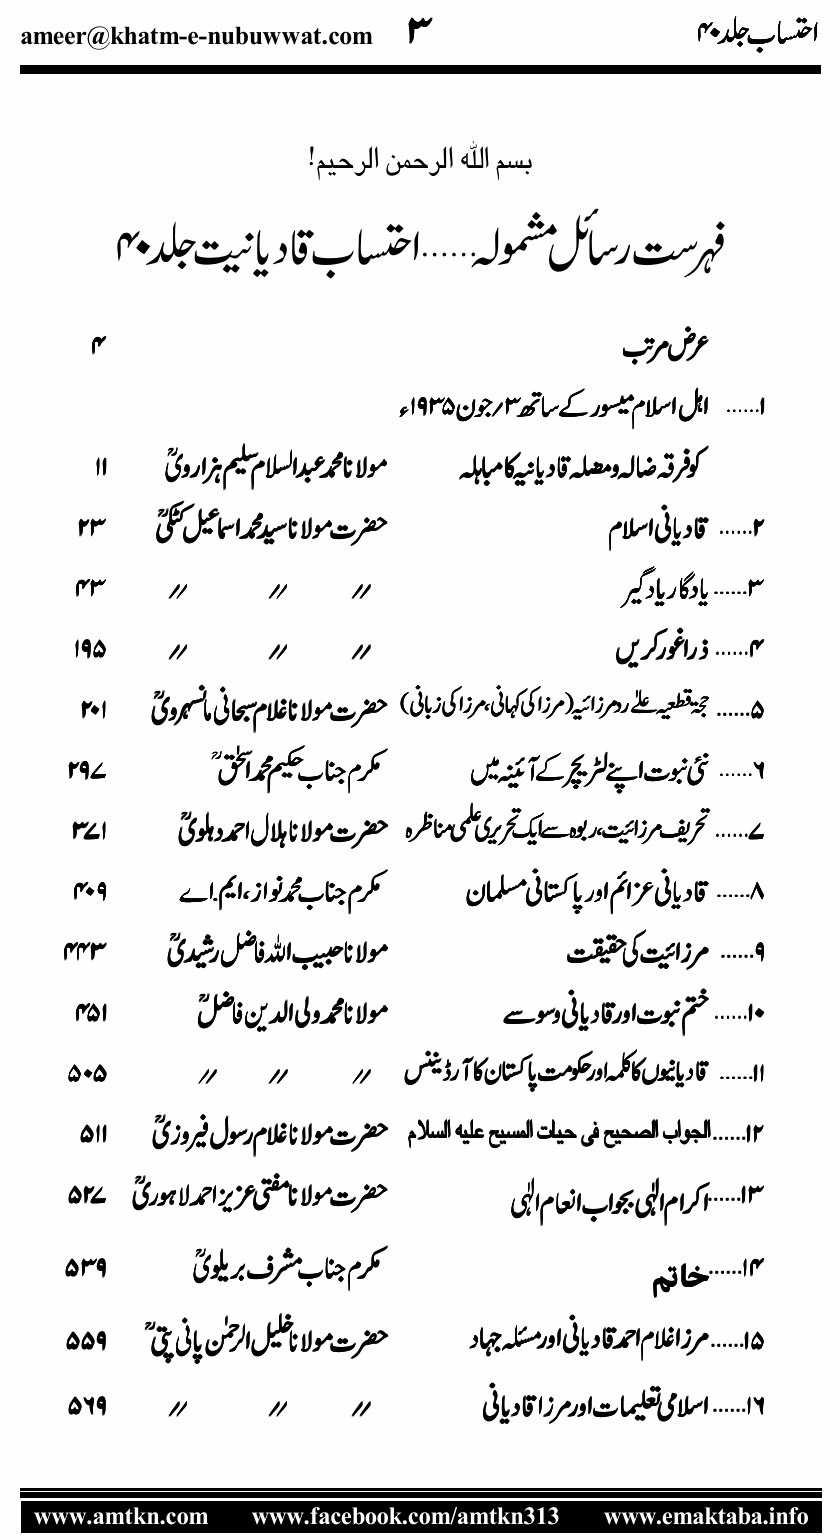 احتساب جلد۴۰ ۳ ameer@khatm-e-nubuwwat.com
بسم اللہ الرحمن الرحیم!
فہرست رسائل مشمولہ......احتساب قادیانیت جلد۴۰
عرض مرتب ۴
۱...... اہل اسلام میسور کے ساتھ ۳/جون ۱۹۳۵ء
کو فرقہ ضالہ ومضلہ قادیانیہ کا مباہلہ مولانا محمد عبدالسلام سلیم ہزارویؒ ۱۱
۲...... قادیانی اسلام حضرت مولانا سید محمد اسماعیل کٹکیؒ ۲۳
۳...... یادگار یادگیر // // // ۴۳
۴...... ذرا غور کریں // // // ۱۹۵
۵...... حجۃ قطعیہ علےٰ رد مرزائیہ (مرزا کی کہانی، مرزا کی زبانی) حضرت مولانا غلام سبحانی مانسہرویؒ ۲۰۱
۶...... نئی نبوت اپنے لٹریچر کے آئینہ میں مکرم جناب حکیم محمد اسحٰقؒ ۲۹۷
۷...... تحریف مرزائیت، ربوہ سے ایک تحریری علمی مناظرہ حضرت مولانا ہلال احمد دہلویؒ ۳۷۱
۸...... قادیانی عزائم اور پاکستانی مسلمان مکرم جناب محمد نواز، ایم.اے ۴۰۹
۹...... مرزائیت کی حقیقت مولانا حبیب اللہ فاضل رشیدیؒ ۴۴۳
۱۰...... ختم نبوت اور قادیانی وسوسے مولانا محمد ولی الدین فاضلؒ ۴۵۱
۱۱...... قادیانیوں کا کلمہ اور حکومت پاکستان کا آرڈیننس // // // ۵۰۵
۱۲...... الجواب الصحیح فی حیات المسیح علیہ السلام حضرت مولانا غلام رسول فیروزیؒ ۵۱۱
۱۳...... اکرام الٰہی بجواب انعام الٰہی حضرت مولانا مفتی عزیز احمد لاہوریؒ ۵۲۷
۱۴...... خاتم مکرم جناب مشرف بریلویؒ ۵۳۹
۱۵...... مرزا غلام احمد قادیانی اور مسئلہ جہاد حضرت مولانا خلیل الرحمٰن پانی پتیؒ ۵۵۹
۱۶...... اسلامی تعلیمات اور مرزا قادیانی // // // ۵۶۹
www.amtkn.com www.facebook.com/amtkn313 www.emaktaba.info